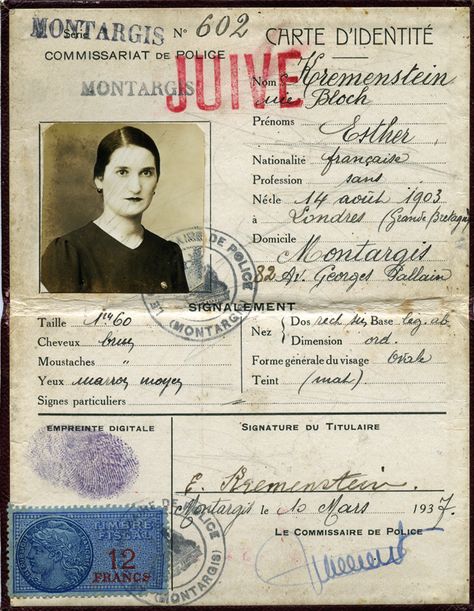 MONTARGIS
Série N° 602
CARTE D'IDENTITÉ
COMMISSARIAT DE POLICE
MONTARGIS
JUIVE
Nom Kremenstein
née Bloch
Prénoms Esther
Nationalité française
Profession sans
Né(e) le 14 août 1903
à Londres (Grande Bretagne)
Domicile Montargis
32 Av. Georges Pallain
DE POLICE
(MONTARGIS)
SIGNALEMENT
Taille 1m60
Cheveux brun
Moustaches "
Yeux marron moyen
Signes particuliers
Nez Dos rect Base leg. ab
Dimension ord.
Forme générale du visage Ovale
Teint (mat)
EMPREINTE DIGITALE
SIGNATURE DU TITULAIRE
E. Kremenstein
Montargis le 10 Mars 1937
LE COMMISSAIRE DE POLICE
TIMBRE FISCAL
12
FRANCS
DE POLICE
(MONTARGIS)